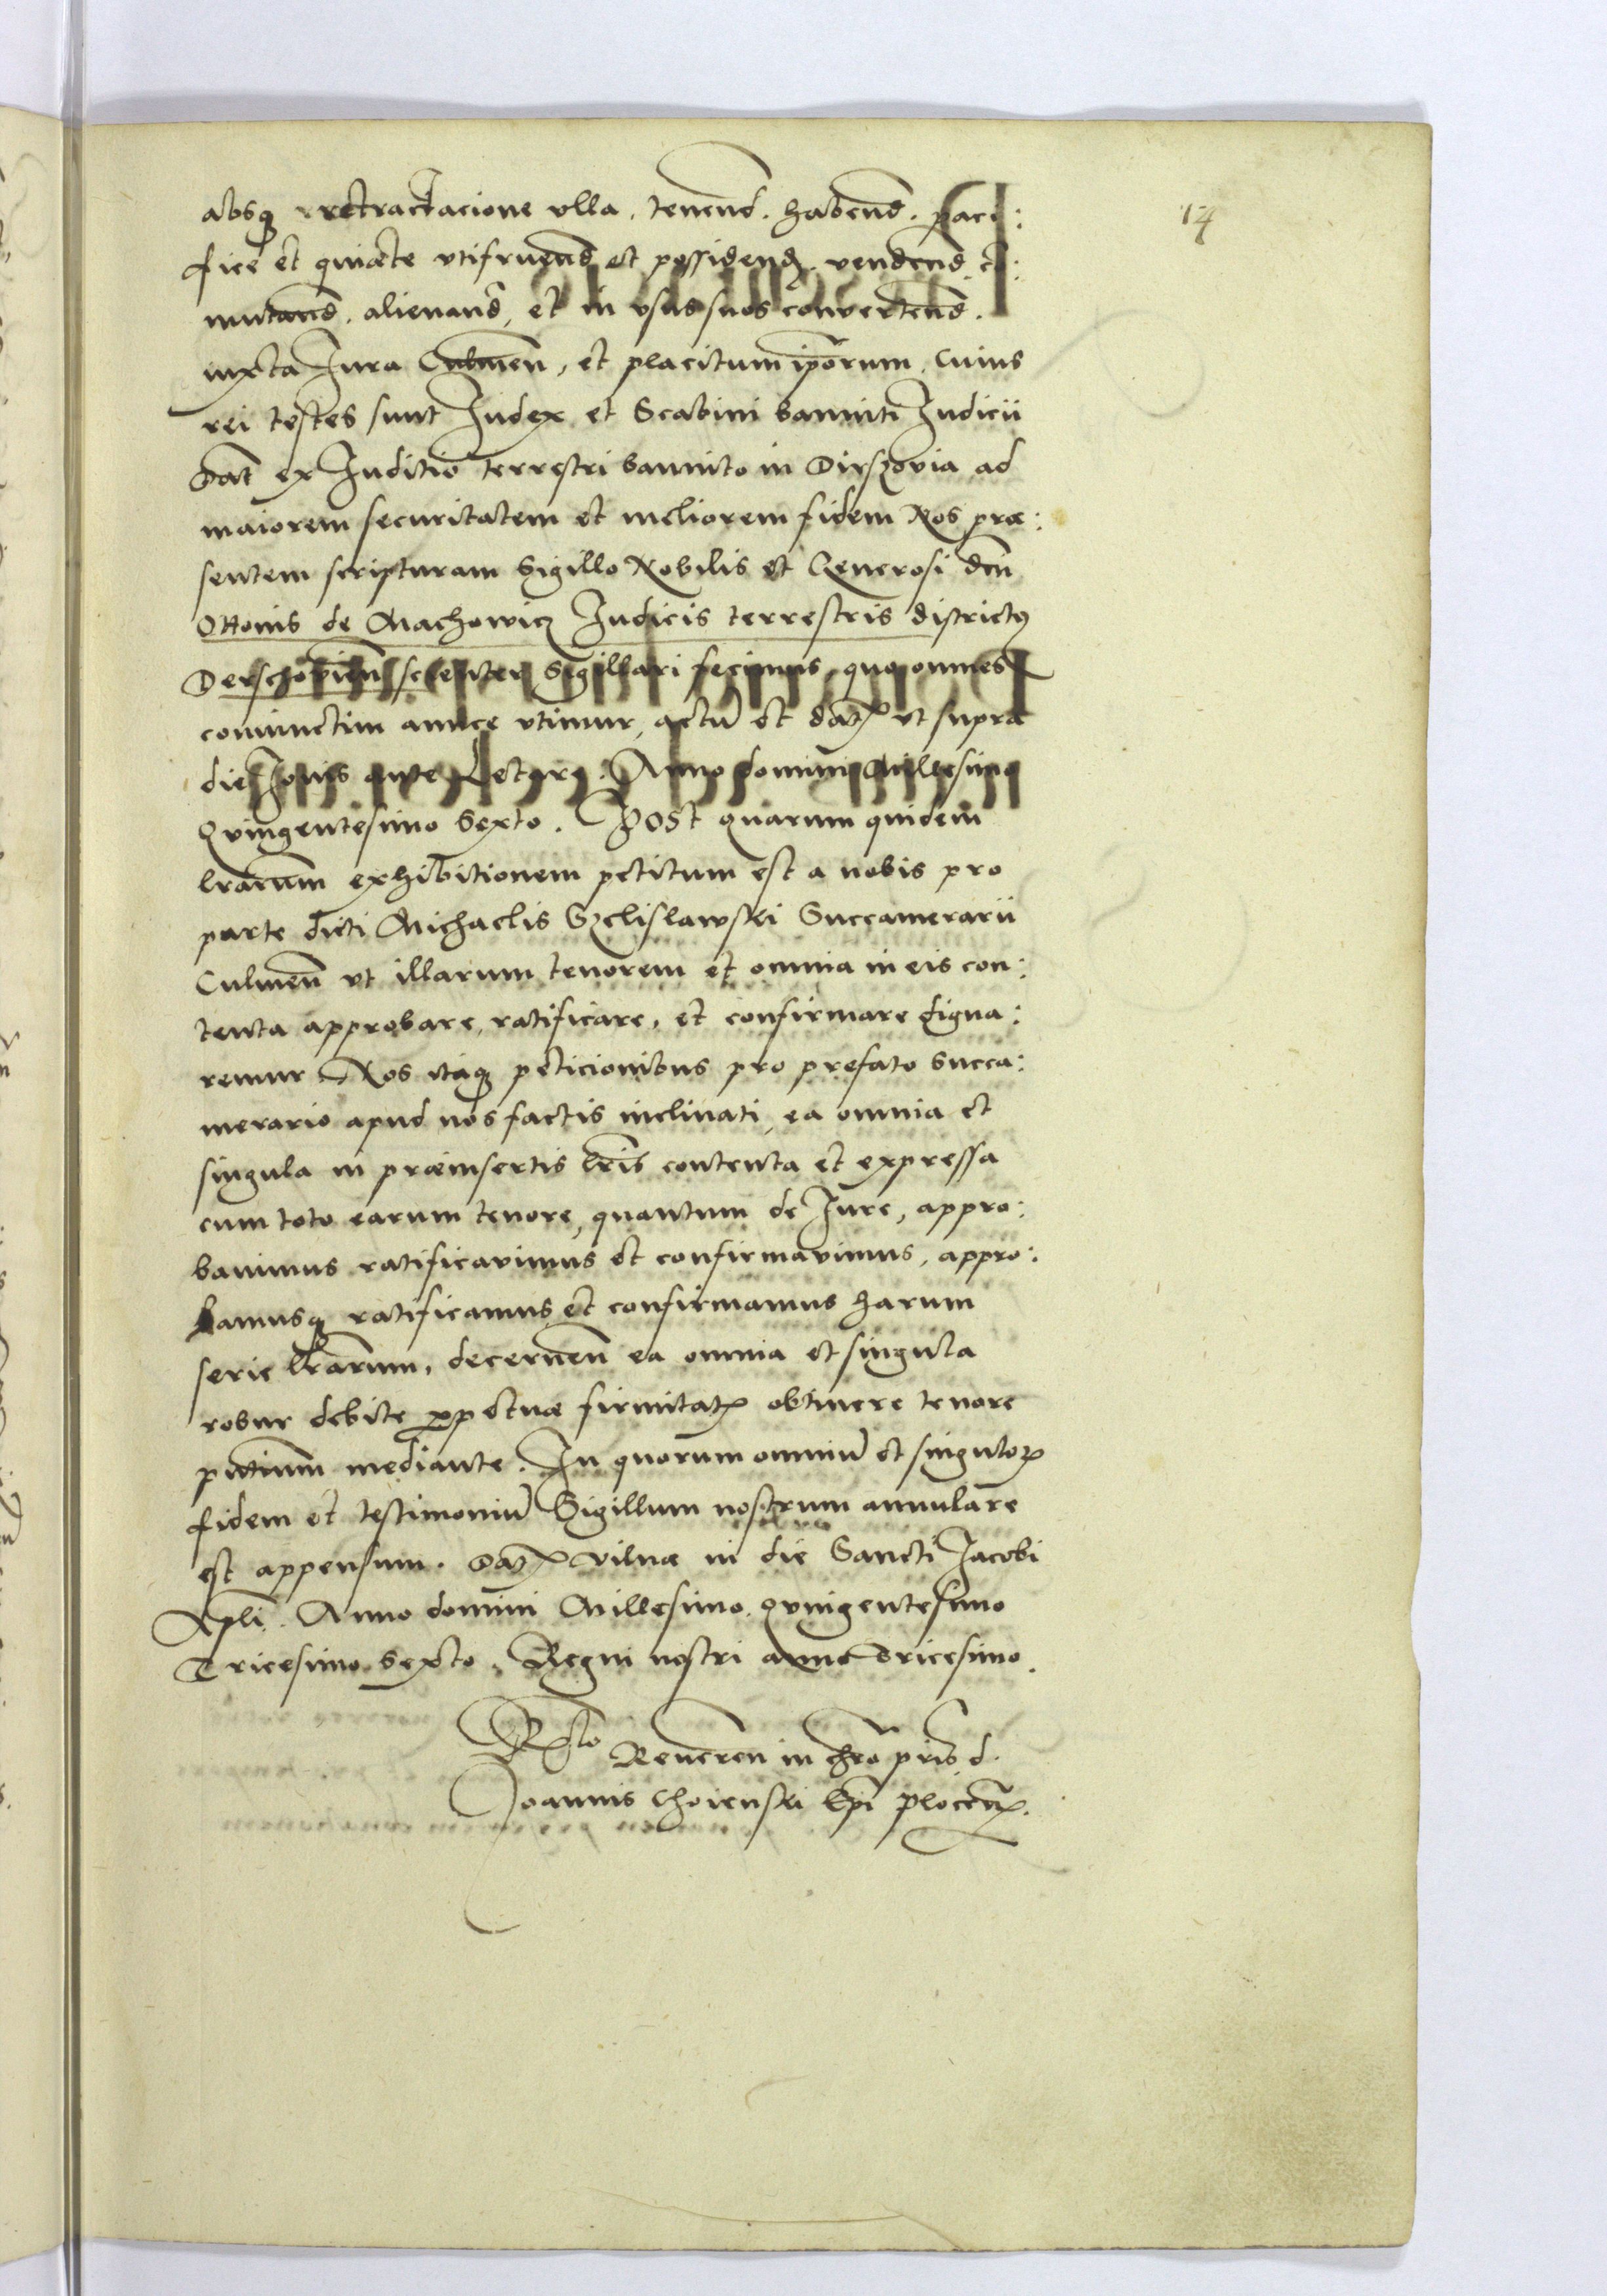 14
absq rretractacione vlla, tenend. habend. paci:
fice et quiæte vtifruend et possidend. vendend co:
mutand. alienand, et in vsus suos convertend.
iuxta Jura Culmen, et placitum ipsorum, Cuius
rei testes sunt Judex et Scabini banniti Judicii
Dat ex Juditio terrestri bannito in Dirszovia ad
maiorem securitatem et meliorem fidem Nos præ:
sentem scripturam Sigillo Nobilis et Generosi dni
Ottonis de Machowicz Judicis terrestris districtus
Derschovien scienter Sigillari fecimus, quo omnes
coniunctim amice vtimur, actu et dat vt supra
die Jovis ante Letare. Anno domini Millesimo
Qvingentesimo Sexto. Post quarum quidem
lrarum exhibitionem petitum est a nobis pro
parte dicti Michaelis Szelislawski Succamerarii
Culmen vt illarum tenorem et omnia in eis con:
tenta approbare, ratificare, et confirmare digna:
remur Nos itaq peticionibus pro prefato Succa:
merario apud nos factis inclinati, ea omnia et
singula in præinsertis lris contenta et expressa
cum toto earum tenore, quantum de Jure, appro:
bavimus ratificavimus et confirmavimus, appro:
bamusq ratificamus et confirmamus harum
serie lrarum, decernen ea omnia et singula
robur debite perpetuæ firmitatis obtinere tenore
pntium mediante. In quorum omniu et singulor
fidem et testimoniu Sigillum nostrum annulare
est appensum. Dat Vilnæ in die Sancti Jacobi
Apli. Anno domini Millesimo qvingentesimo
Tricesimo Sexto. Regni nostri anno Tricesimo.
Rlo Reveren in chro pris d.
Joannis Choienski Epi Plocen.